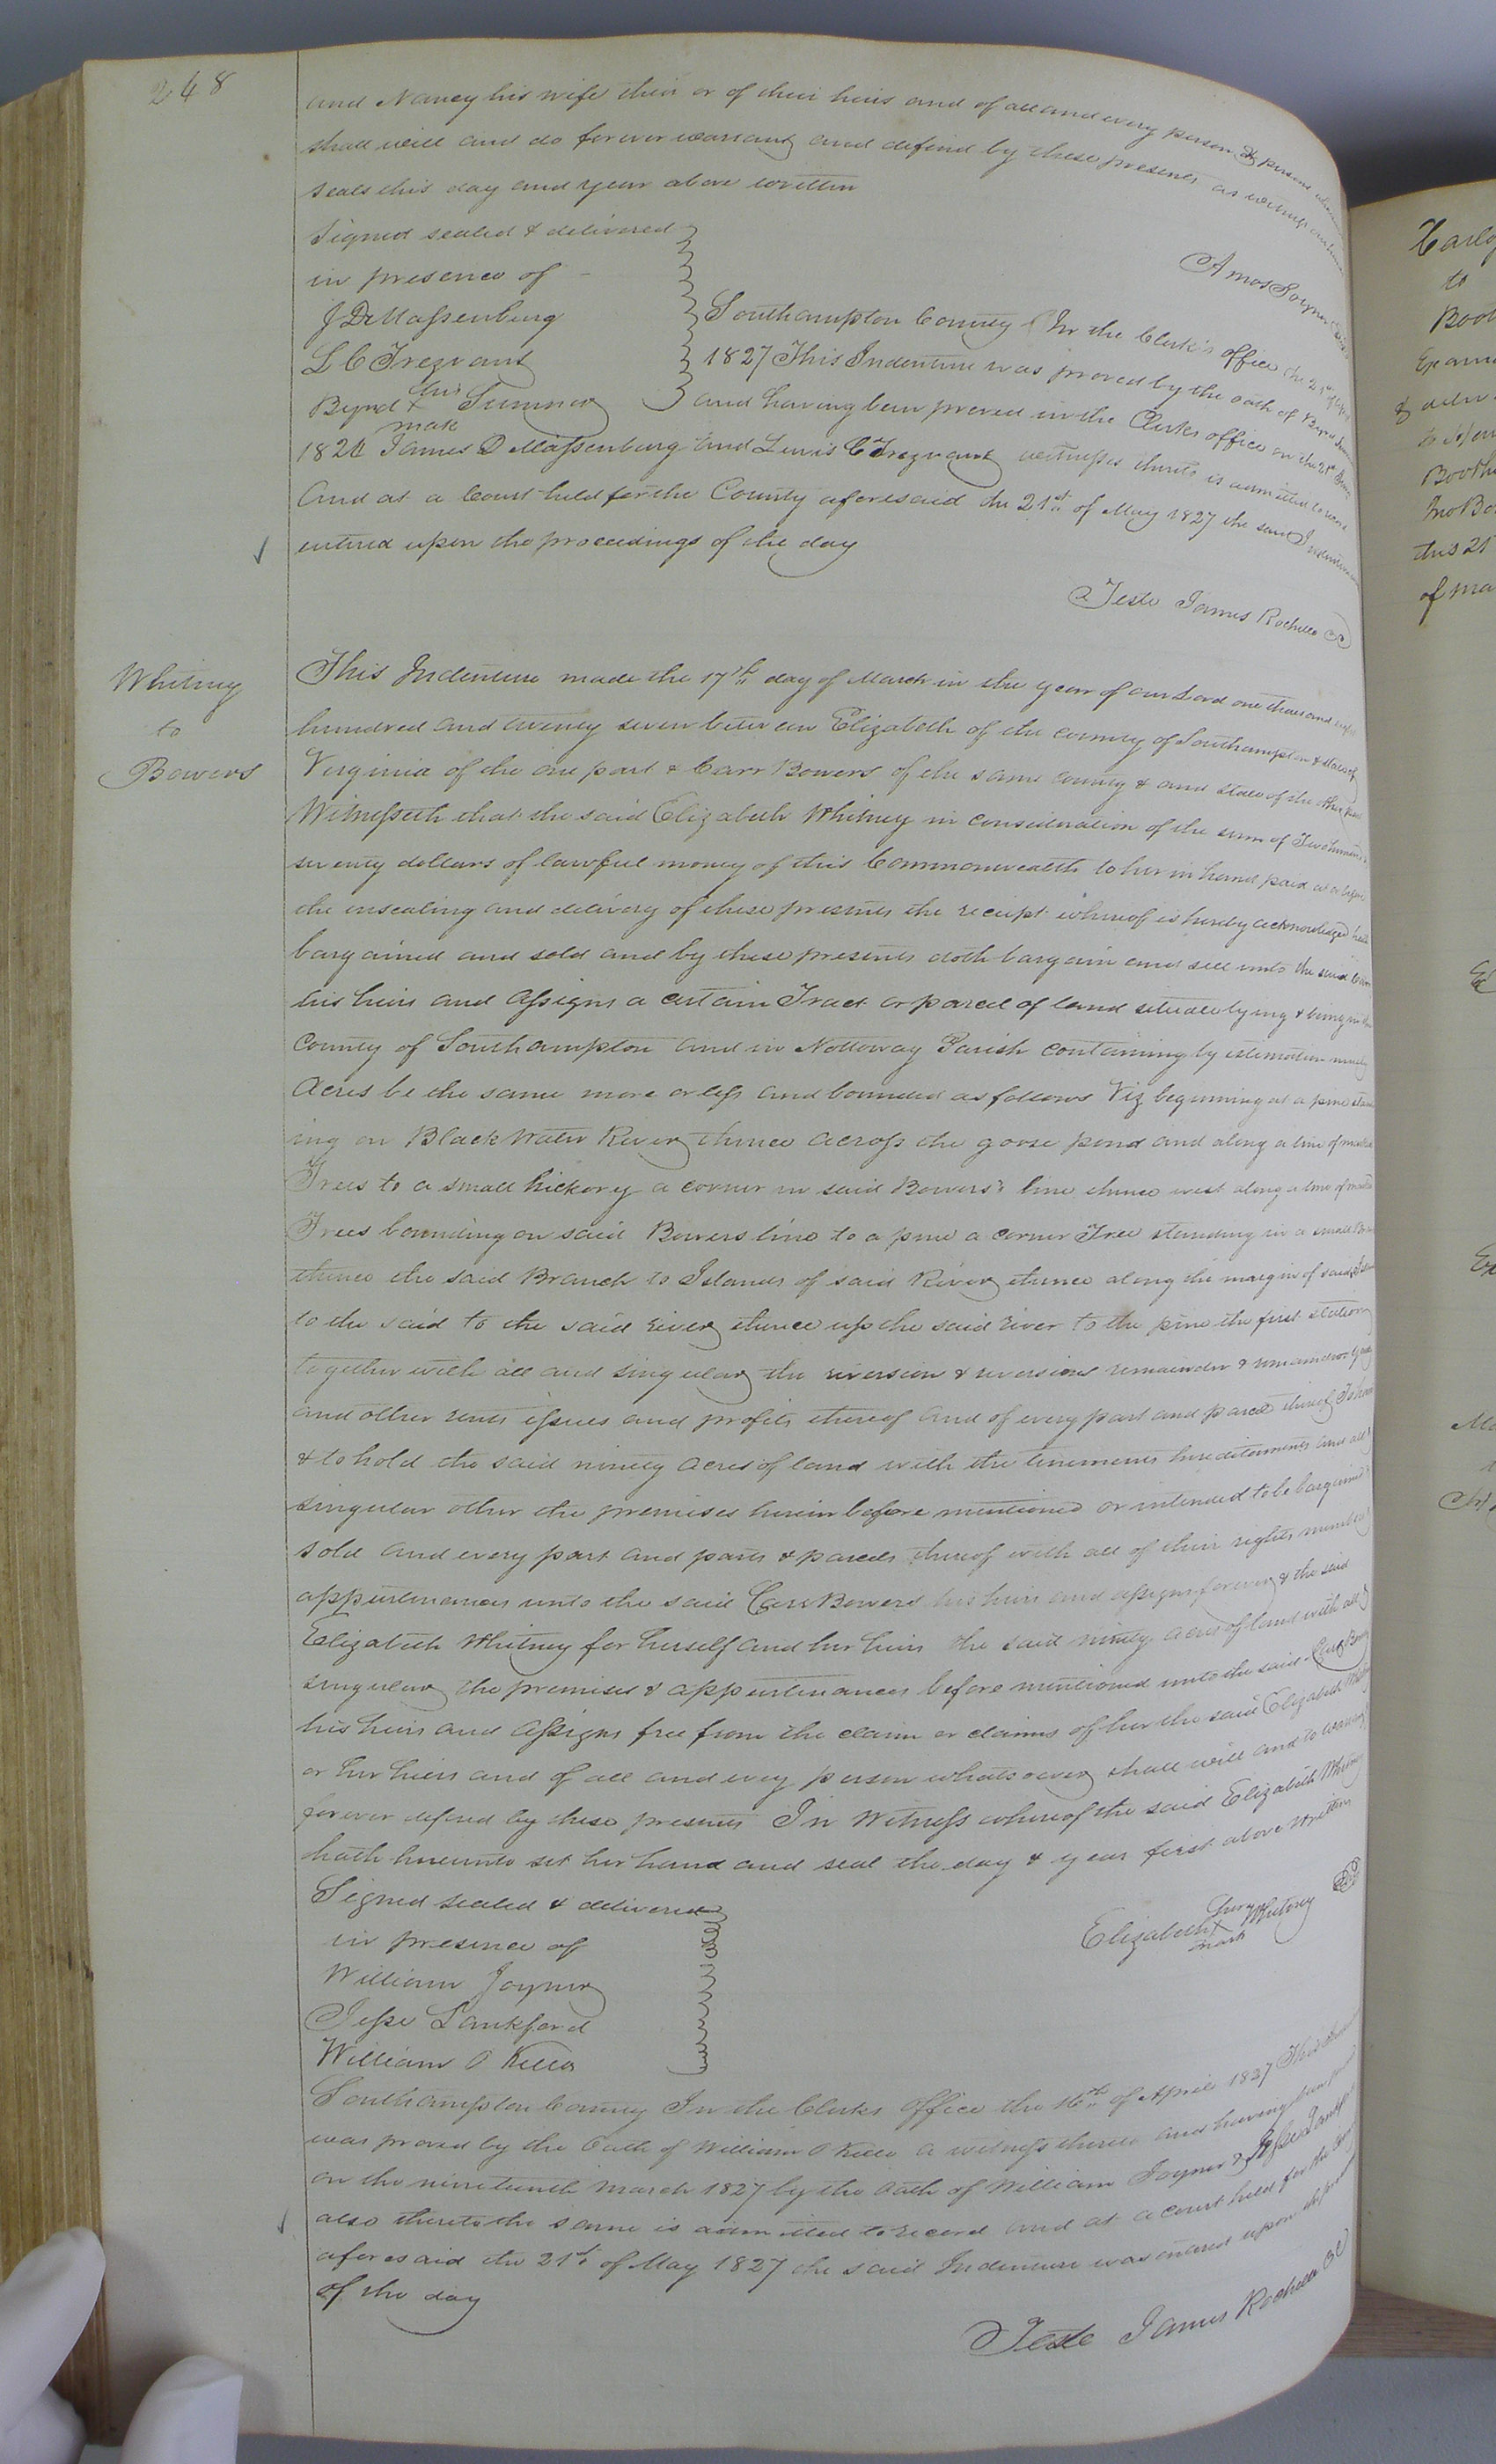 248
and Nancy his wife their or of their heirs and of all and every person or persons
shall will and do forever warrant and defend by these presents as witness our hands
seals this day and year above written
Signed sealed & delivered
in presence of
J D Massenburg
L C Trezvant
his
Byrd x Sumner
mark
Amos Joyner
Southampton County In the Clerk's office the 21st of
1827 This Indenture was proved by the oath of Byrd Sumner
and having been proved in the Clerks office on the 21st
1826 James D Massenburg and Lewis C Trezvant witnesses thereto is admitted to record
And at a Court held for the County aforesaid the 21st of May 1827 the said Indenture
entered upon the proceedings of the day
Teste James Rochelle CC
Whitney
to
Bowers
This Indenture made the 17th day of March in the year of our Lord one thousand eight
hundred and twenty seven between Elizabeth of the county of Southampton & state of
Virginia of the one part & Carr Bowers of the same county & and state of the other part
Witnesseth that the said Elizabeth Whitney in consideration of the sum of Two hundred &
seventy dollars of lawful money of this Commonwealth to her in hand paid at or before
the ensealing and delivery of these presents the receipt whereof is hereby acknowledged hath
bargained and sold and by these presents doth bargain and sell unto the said Carr
his heirs and assigns a certain Tract or parcel of land situate lying & being in the
County of Southampton and in Nottoway Parish containing by estimation ninety
Acres be the same more or less and bounded as follows Viz beginning at a pine stand
ing on Black Water River thence across the goose pond and along a line of marked
Trees to a small hickory a corner in said Bowers's line thence west along a line of marked
Trees bounding on said Bowers line to a pine a corner Tree standing in a small Branch
thence the said Branch to Islands of said River thence along the margin of said
to the said to the said river thence up the said river to the pine the first station
together with all and singular the reversion & reversions remainder & remainders
and other rents issues and profits thereof and of every part and parcel thereof To have
& to hold the said ninety acres of land with the tenements hereditaments and all &
singular other the premises herein before mentioned or intended to be bargained &
sold and every part and parts & parcels thereof with all of their rights members &
appurtenances unto the said Carr Bowers his heirs and assigns forever & the said
Elizabeth Whitney for herself and her heirs the said ninety acres of land with all &
singular the premises & appurtenances before mentioned unto the said Carr Bowers
his heirs and assigns free from the claim or claims of her the said Elizabeth Whitney
or her heirs and of all and every person whatsoever shall will and do warrant
forever defend by these presents In Witness whereof the said Elizabeth Whitney
hath hereunto set her hand and seal the day & year first above Written
Signed sealed & delivered
in presence of
William Joyner
Jesse Lankford
William O Kello
her
Elizabeth x Whitney
mark
Southampton County In the Clerks Office the 16th of April 1827 This
was proved by the Oath of William O Kello a witness thereto and having been proved
on the nineteenth March 1827 by the Oath of William Joyner & Jesse Lankford
also thereto the same is admitted to record and at a court held for the County
aforesaid the 21st of May 1827 the said Indenture was entered upon the
of the day
Teste James Rochelle CC
to
this 21
of ma